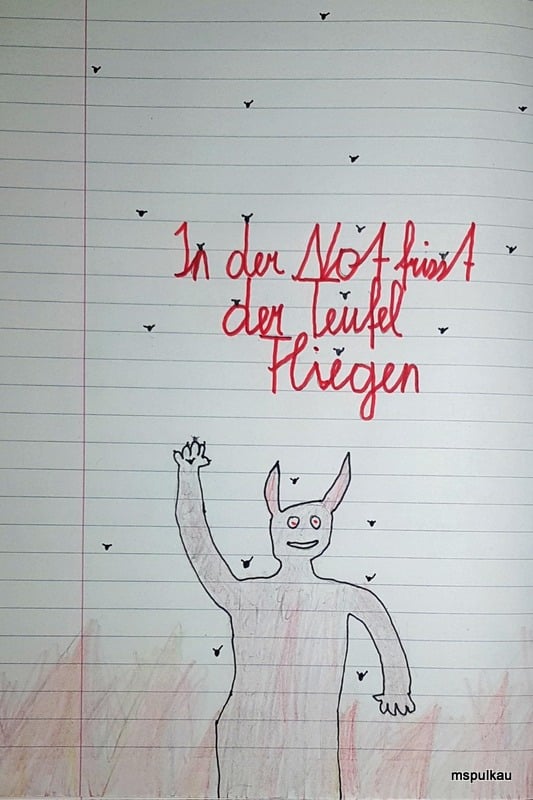 In der Not frisst
der Teufel
Fliegen
mspulkau